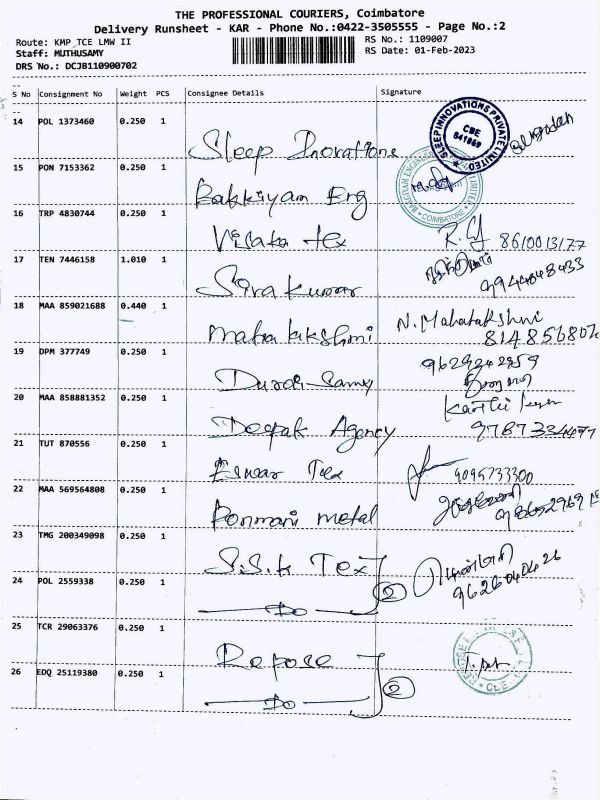 THE PROFESSIONAL COURIERS, Coimbatore
Delivery Runsheet - KAR - Phone No.:0422-3505555 - Page No.:2
Route: KMP_TCE LMW II RS No.: 1109007
Staff: MUTHUSAMY RS Date: 01-Feb-2023
DRS No.: DCJB110900702
S No Consignment No Weight PCS Consignee Details Signature
14 POL 1373460 0.250 1 Sleep Inovations
SLEEP INNOVATIONS PRIVATE LIMITED CBE 641069
15 PON 7153362 0.250 1 Bakkiyam Erg
LIMITED * COIMBATORE
16 TRP 4830744 0.250 1 Visaka tex 8610013177
17 TEN 7446158 1.010 1 Siva kumar 9944848433
18 MAA 859021688 0.440 1 maha lakshmi N. Mahalakshmi
19 DPM 377749 0.250 1 Durai Samy
20 MAA 858881352 0.250 1 Deepak Agency
21 TUT 870556 0.250 1 Eswar Tex 9095733300
22 MAA 569564808 0.250 1 Ponmani metal
23 TMG 200349098 0.250 1 S.S.k Tex
24 POL 2559338 0.250 1 Do 2 9626040426
25 TCR 29063376 0.250 1 Repose
CBE
26 EDQ 25119380 0.250 1 Do 2